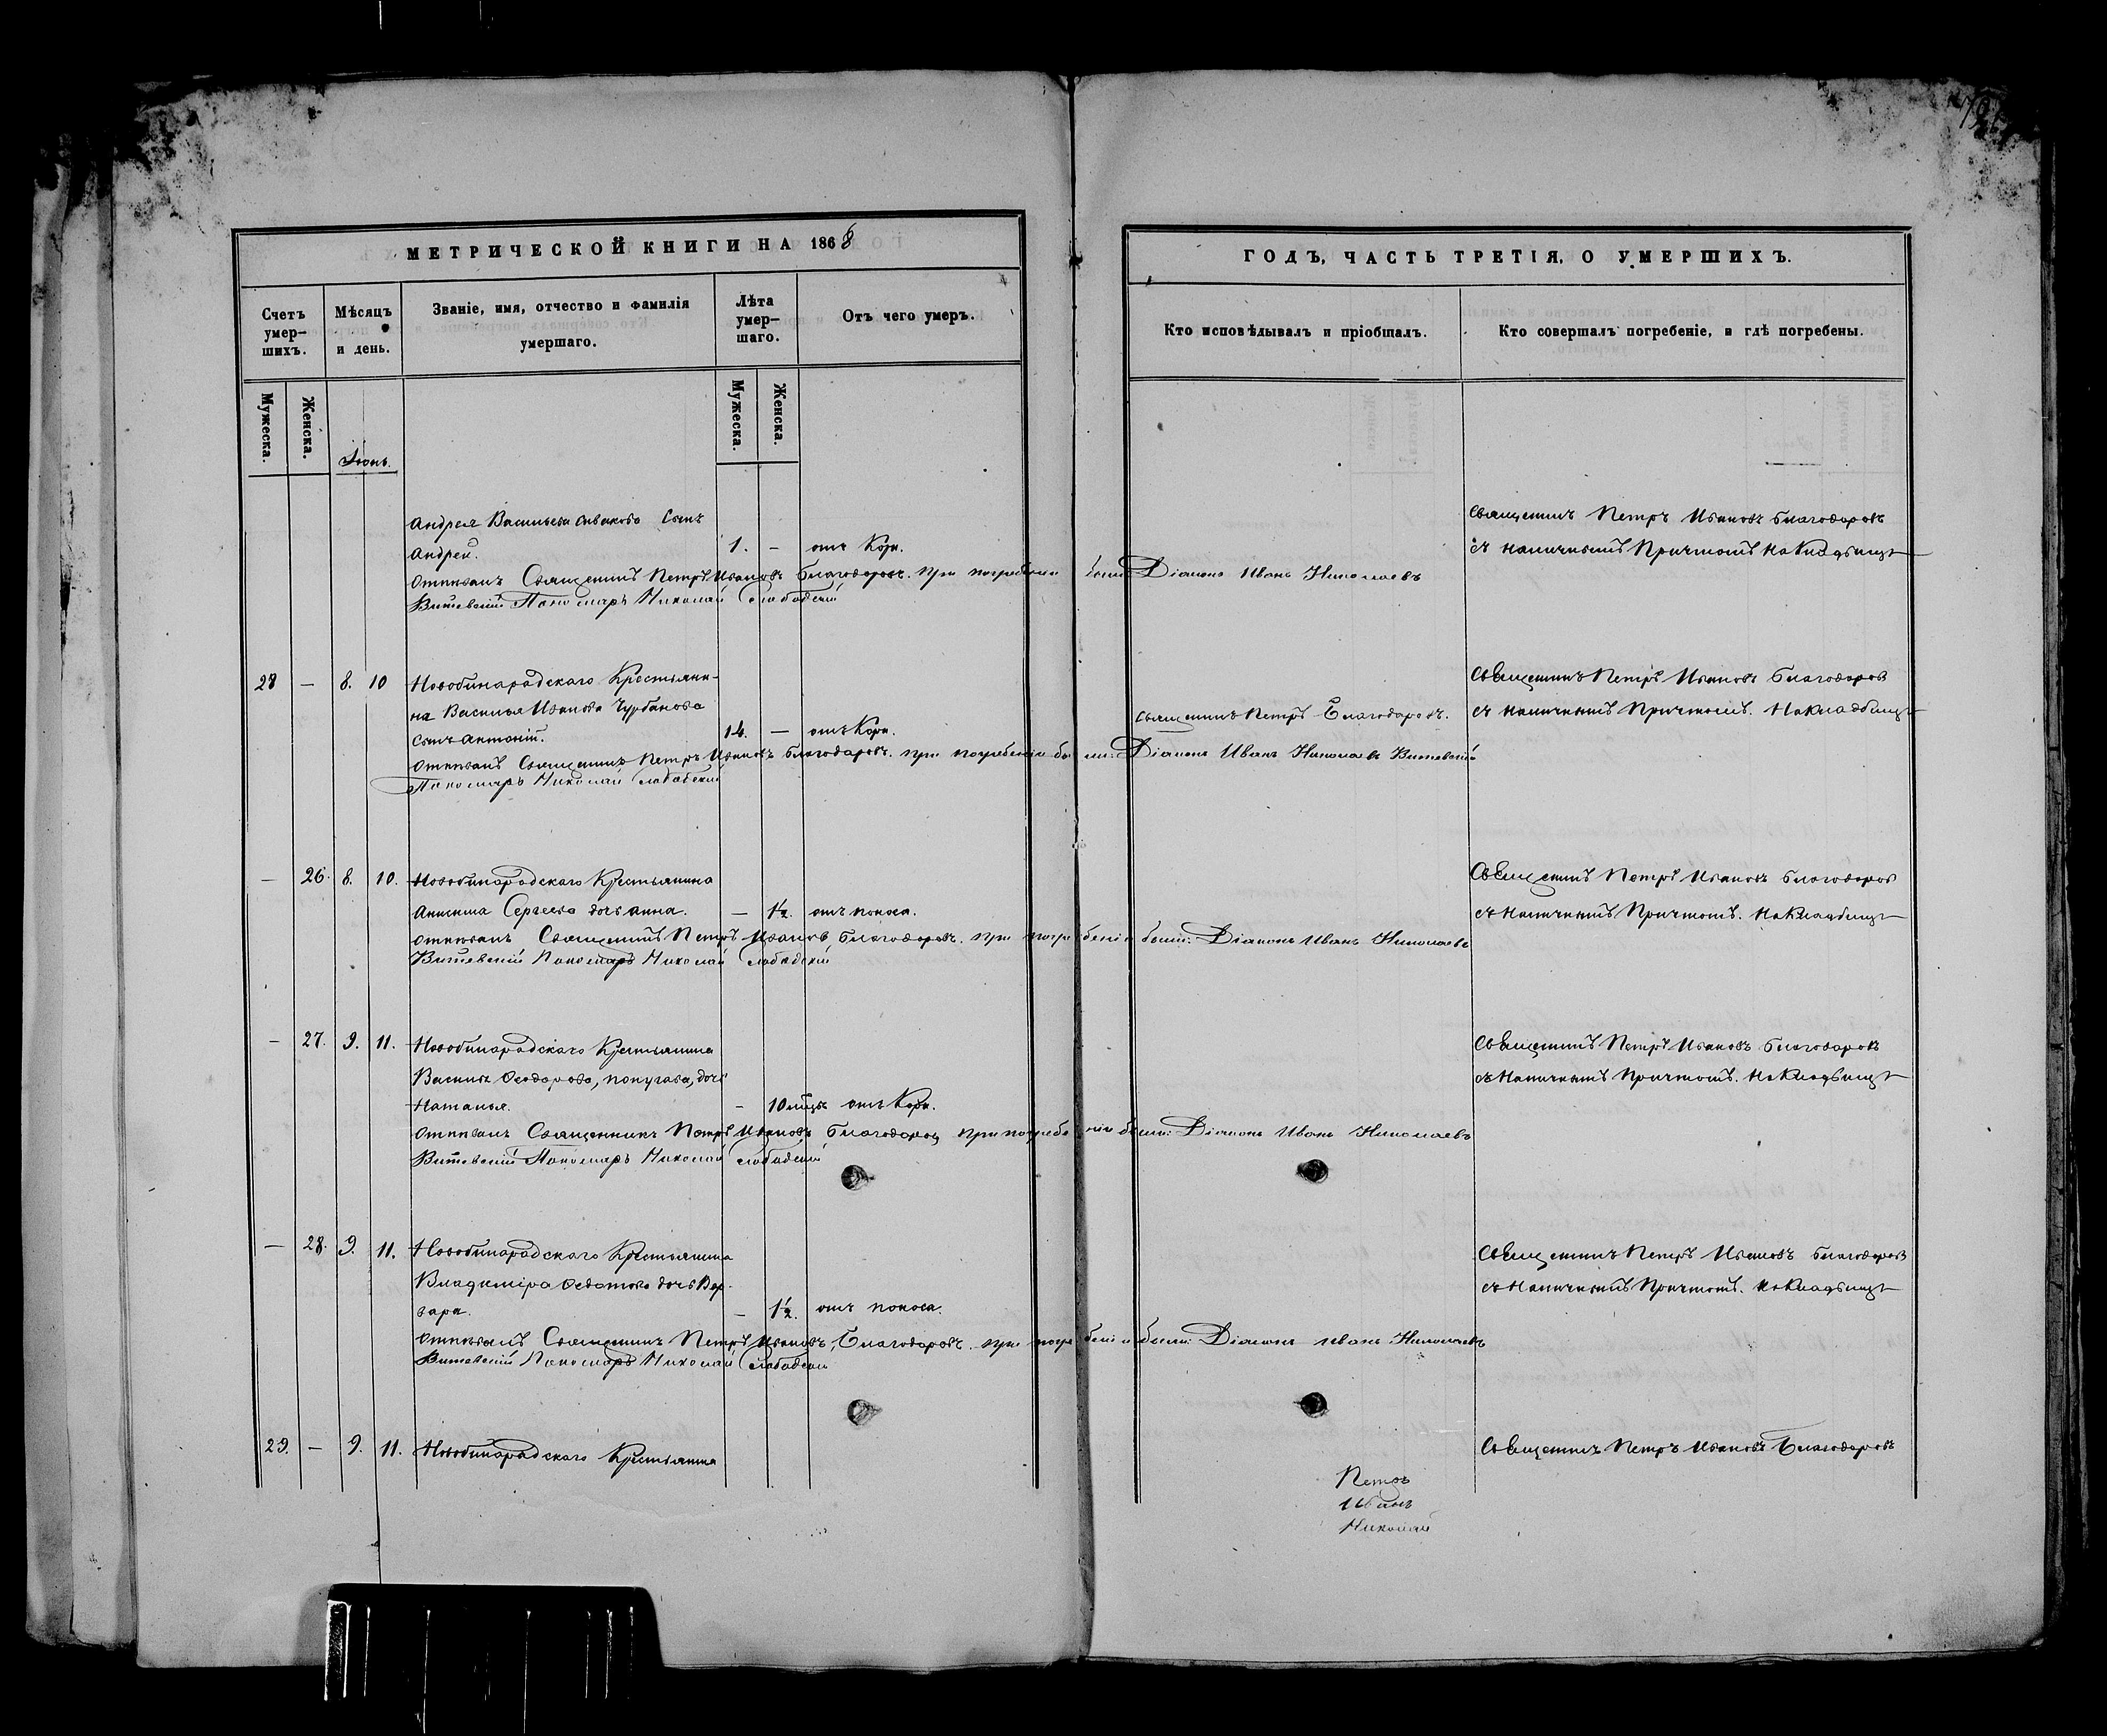 МЕТРИЧЕСКОЙ КНИГИ НА 1868
ГОДЪ, ЧАСТЬ ТРЕТІЯ, О УМЕРШИХЪ.
Счетъ умер-шихъ.
Мѣсяцъ и день.
Званіе, имя, отчество и фамилія умершаго.
Лѣта умер-шаго.
Отъ чего умеръ.
Кто исповѣдывалъ и пріобщалъ.
Кто совершалъ погребеніе, и гдѣ погребены.
Мужеска.
Женска.
Мужеска.
Женска.
Андрея Васильева Сынъ
Андрей. 1. – отъ Кори.
Священникъ Петръ Ивановъ Благодаровъ
съ наличнымъ Причтомъ на Кладбищѣ
Отпѣвалъ Священникъ Петръ Ивановъ Благодаровъ. при погребеніи были: Діаконъ Иванъ Николаевъ
Витевскій Пономарь Николай Слободскій
28 – 8. 10 Новобинарадскаго Крестьяни-
на Василья Иванова Чурбанова
сынъ Антоній. 14. – отъ Кори.
Священникъ Петръ Благодаровъ.
Священникъ Петръ Ивановъ Благодаровъ
съ наличнымъ Причтомъ. На Кладбищѣ
Отпѣвалъ Священникъ Петръ Ивановъ Благодаровъ. при погребеніи были: Діаконъ Иванъ Николаевъ Витевскій
Пономарь Николай Слободскій
– 26. 8. 10. Новобинарадскаго Крестьянина
Анисима Сергеева дочь Анна. – 1½. отъ поноса.
Священникъ Петръ Ивановъ Благодаровъ
съ Наличнымъ Причтомъ. На Кладбищѣ
Отпѣвалъ Священникъ Петръ Ивановъ Благодаровъ. при погребеніи были: Діаконъ Иванъ Николаевъ
Витевскій Пономарь Николай Слободскій
– 27. 9. 11. Новобинарадскаго Крестьянина
Василья Ѳеодорова, попугава, дочь
Наталья. – 10 мцъ отъ Кори.
Священникъ Петръ Ивановъ Благодаровъ
съ Наличнымъ Причтомъ. На Кладбищѣ
Отпѣвалъ Священникъ Петръ Ивановъ Благодаровъ при погребеніи были: Діаконъ Иванъ Николаевъ
Витевскій Пономарь Николай Слободскій
– 28. 9. 11. Новобинарадскаго Крестьянина
Владиміра Ѳедотова дочь Вар-
вара. – 1½. отъ поноса.
Священникъ Петръ Ивановъ Благодаровъ
съ Наличнымъ Причтомъ. на Кладбищѣ
Отпѣвалъ Священникъ Петръ Ивановъ, Благодаровъ. при погребеніи были: Діаконъ Иванъ Николаевъ
Витевскій Пономарь Николай Слободскій
29. – 9. 11. Новобинарадскаго Крестьянина
Священникъ Петръ Ивановъ Благодаровъ
Петръ
Иванъ
Николай